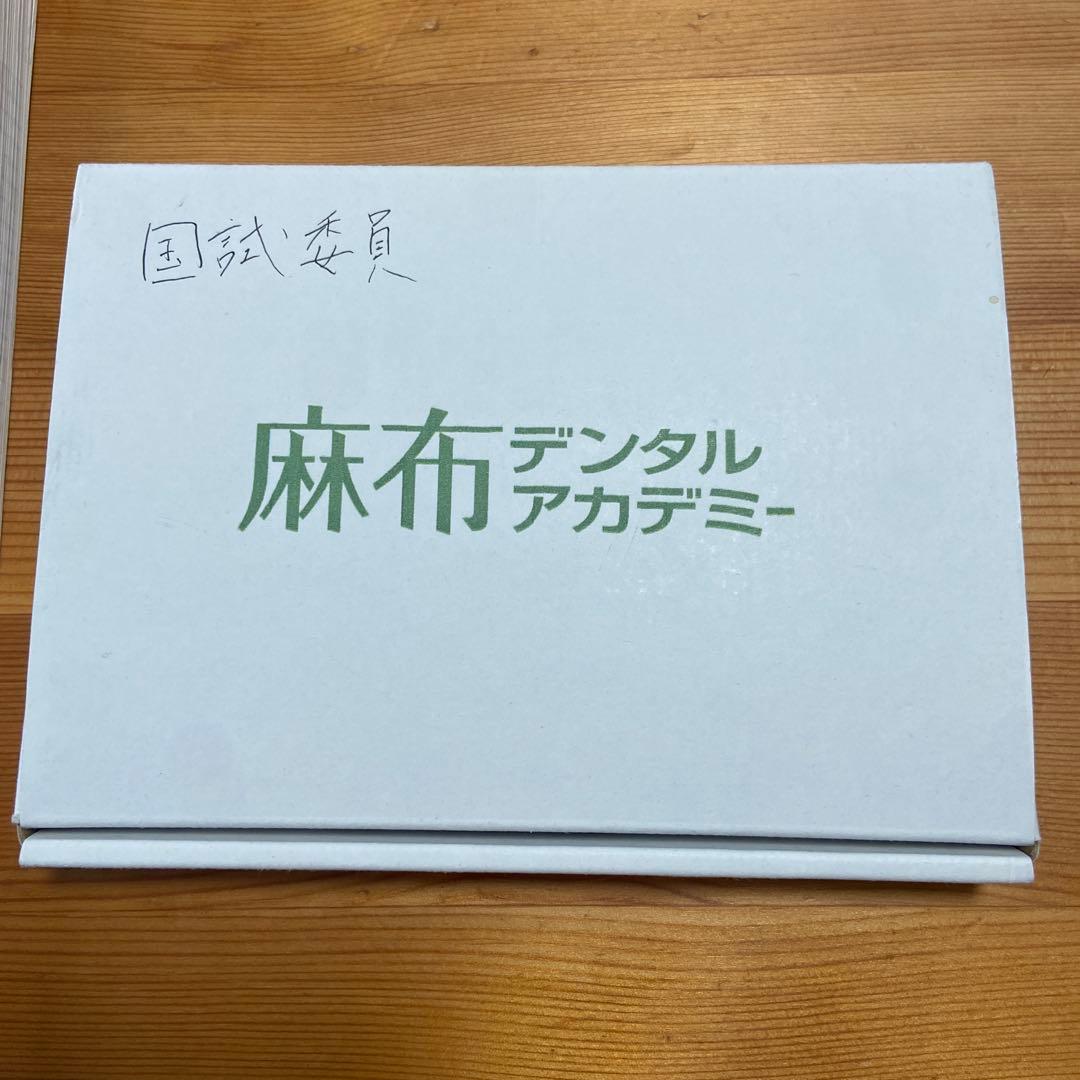 国試委員
麻布デンタル
アカデミー